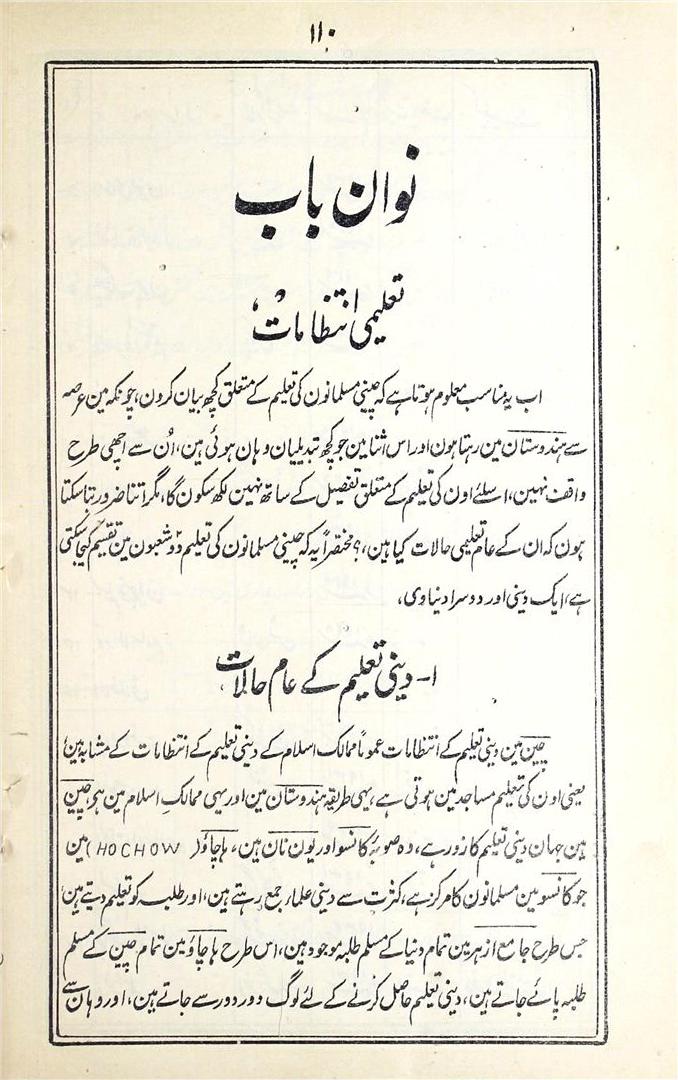 ۱۱۰
نوان باب
تعلیمی انتظامات
اب یہ مناسب معلوم ہوتا ہے کہ چینی مسلمانون کی تعلیم کے متعلق کچھ بیان کرون، چونکہ مین عرصہ
سے ہندوستان مین رہتا ہون اور اس اثنا مین جو کچھ تبدیلیان وہان ہوئی ہین، اُن سے اچھی طرح
واقف نہین، اسلئے اون کی تعلیم کے متعلق تفصیل کے ساتھ نہین لکھ سکون گا، مگر اتنا ضرور بتا سکتا
ہون کہ ان کے عام تعلیمی حالات کیا ہین،؟ مختصراً یہ کہ چینی مسلمانون کی تعلیم دو شعبون مین تقسیم کیجا سکتی
ہے، ایک دینی اور دوسرا دنیاوی،
۱- دینی تعلیم کے عام حالات
چین مین دینی تعلیم کے انتظامات عموماً ممالک اسلام کے دینی تعلیم کے انتظامات کے مشابہ ہین،
یعنی اون کی تعلیم مساجد مین ہوتی ہے، یہی طریقہ ہندوستان مین اور یہی ممالک اسلام مین ہے، چین
مین جہان دینی تعلیم کا زور ہے، وہ صوبہ کانسو اور یون نان ہین، ہاچاؤ (HOCHOW) مین
جو کانسو مین مسلمانون کا مرکز ہے، کثرت سے دینی علماء جمع رہتے ہین، اور طلبہ کو تعلیم دیتے ہین
جس طرح جامع ازہر مین تمام دنیا کے مسلم طلبہ موجود ہین، اس طرح ہاچاؤ مین تمام چین کے مسلم
طلبہ پائے جاتے ہین، دینی تعلیم حاصل کرنے کے لئے لوگ دور دور سے جاتے ہین، اور وہان سے